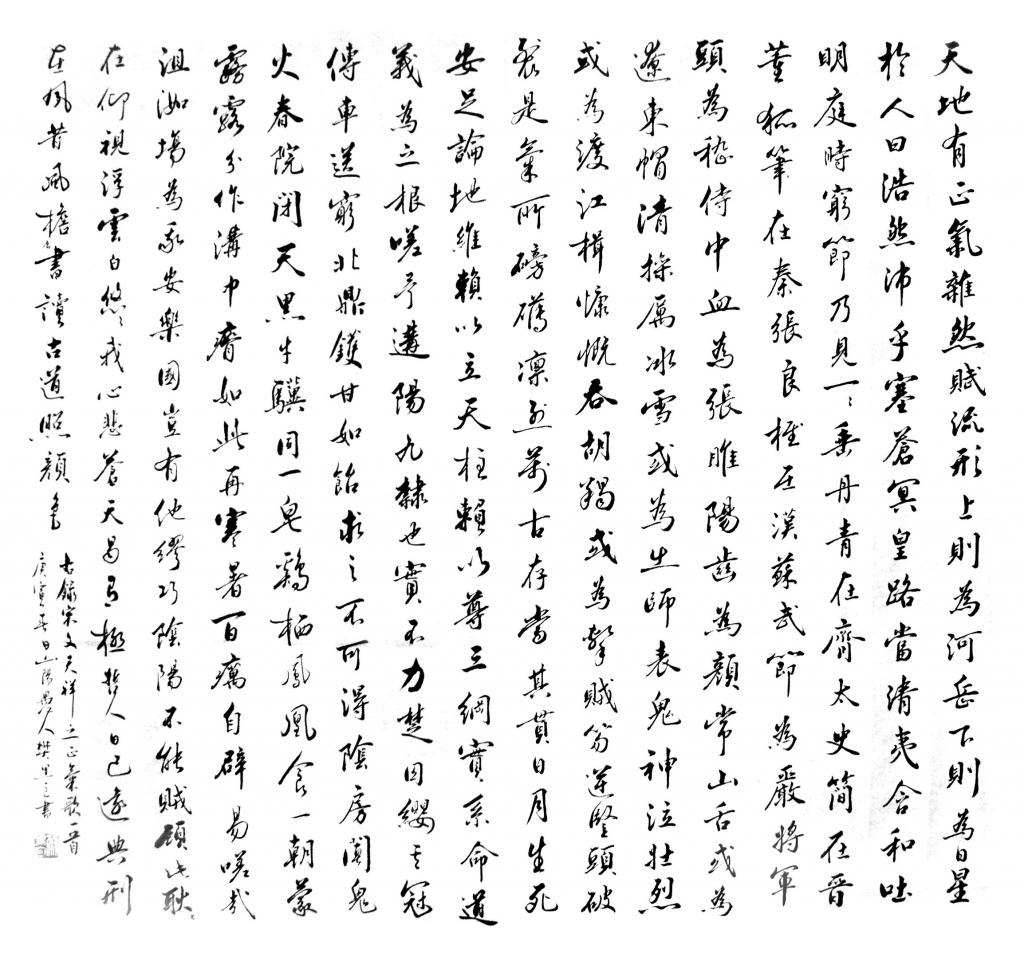 天地有正氣雜然賦流形上則為河岳下則為日星
於人曰浩然沛乎塞蒼冥皇路當清夷含和吐
明庭時窮節乃見一一垂丹青在齊太史簡在晉
董狐筆在秦張良椎在漢蘇武節為嚴將軍
頭為嵇侍中血為張睢陽齒為顏常山舌或為
遼東帽清操厲冰雪或為出師表鬼神泣壯烈
或為渡江楫慷慨吞胡羯或為擊賊笏逆豎頭破
裂是氣所磅礴凜烈萬古存當其貫日月生死
安足論地維賴以立天柱賴以尊三綱實系命道
義為之根嗟予遘陽九隸也實不力楚囚纓其冠
傳車送窮北鼎鑊甘如飴求之不可得陰房闐鬼
火春院閉天黑牛驥同一皂鷄栖鳳凰食一朝蒙
霧露分作溝中瘠如此再寒暑百癘自辟易嗟哉
沮洳場為我安樂國豈有他繆巧陰陽不能賊顧此耿耿
在仰視浮雲白悠悠我心悲蒼天曷有極哲人日已遠典刑
在夙昔風檐書讀古道照顏色
右錄宋文天祥之正氣歌一首
庚寅春日愚人樊書